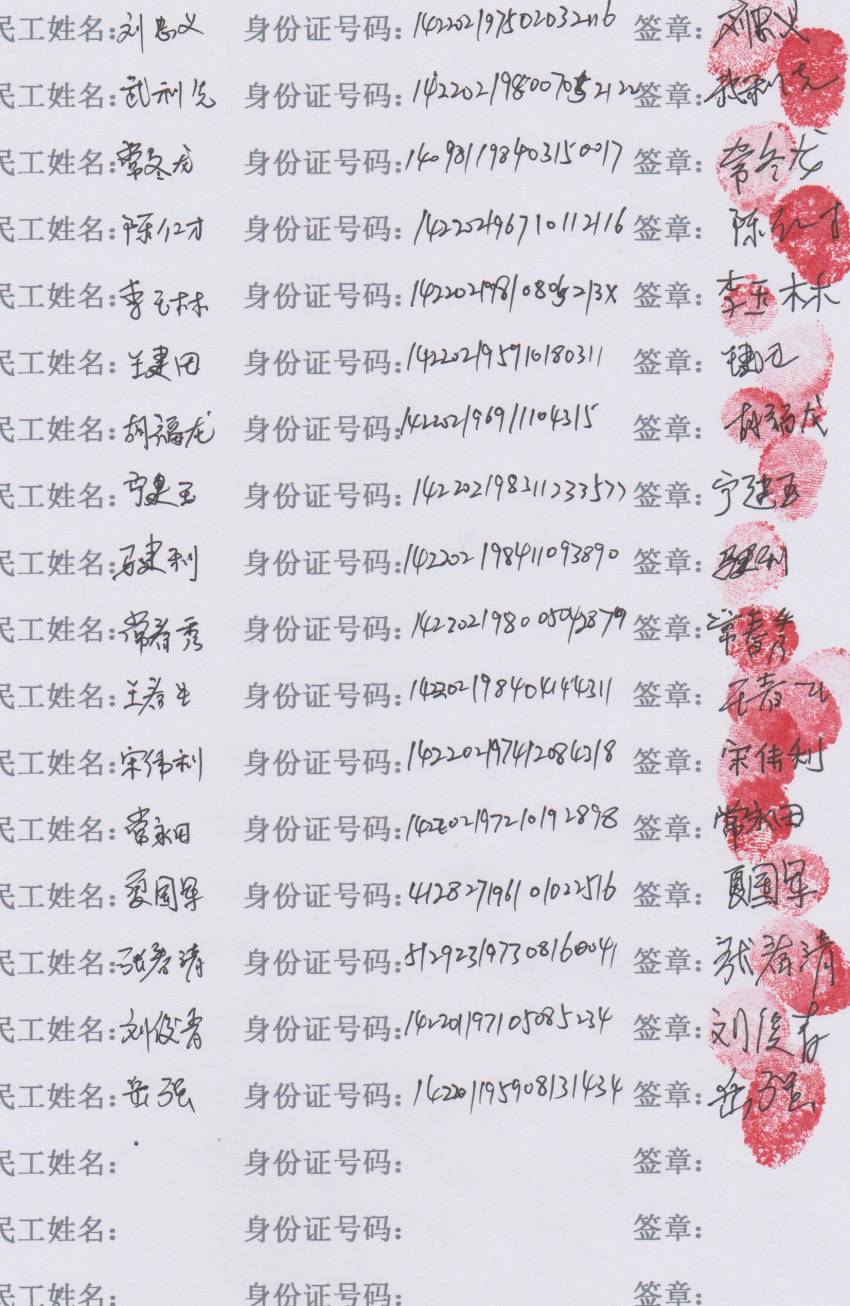 民工姓名:刘忠义 身份证号码:142202197502032116 签章:刘忠义
民工姓名:武利先 身份证号码: 签章:
民工姓名:常冬龙 身份证号码:140981198403150017 签章:常冬龙
民工姓名:陈仁才 身份证号码:142202196710112116 签章:陈仁才
民工姓名:李玉林 身份证号码:14220219810805213X 签章:李玉林
民工姓名:王建田 身份证号码:142202195910180311 签章:
民工姓名:胡福龙 身份证号码:142202196911104315 签章:胡福龙
民工姓名:宁建玉 身份证号码:142202198311233577 签章:宁建玉
民工姓名:马建利 身份证号码:142202198411093890 签章:马建利
民工姓名:常春秀 身份证号码: 签章:常春秀
民工姓名:王春生 身份证号码:142202198404144311 签章:王春生
民工姓名:宋伟利 身份证号码:142202197412084318 签章:宋伟利
民工姓名:常永田 身份证号码:142202197210192898 签章:常永田
民工姓名:夏国军 身份证号码:412827196101022516 签章:夏国军
民工姓名:张春清 身份证号码:512923197308160041 签章:张春清
民工姓名:刘俊青 身份证号码:142201197105085234 签章:刘俊春
民工姓名:岳强 身份证号码:142201195908131434 签章:岳强
民工姓名: 身份证号码: 签章:
民工姓名: 身份证号码: 签章:
民工姓名: 身份证号码: 签章: